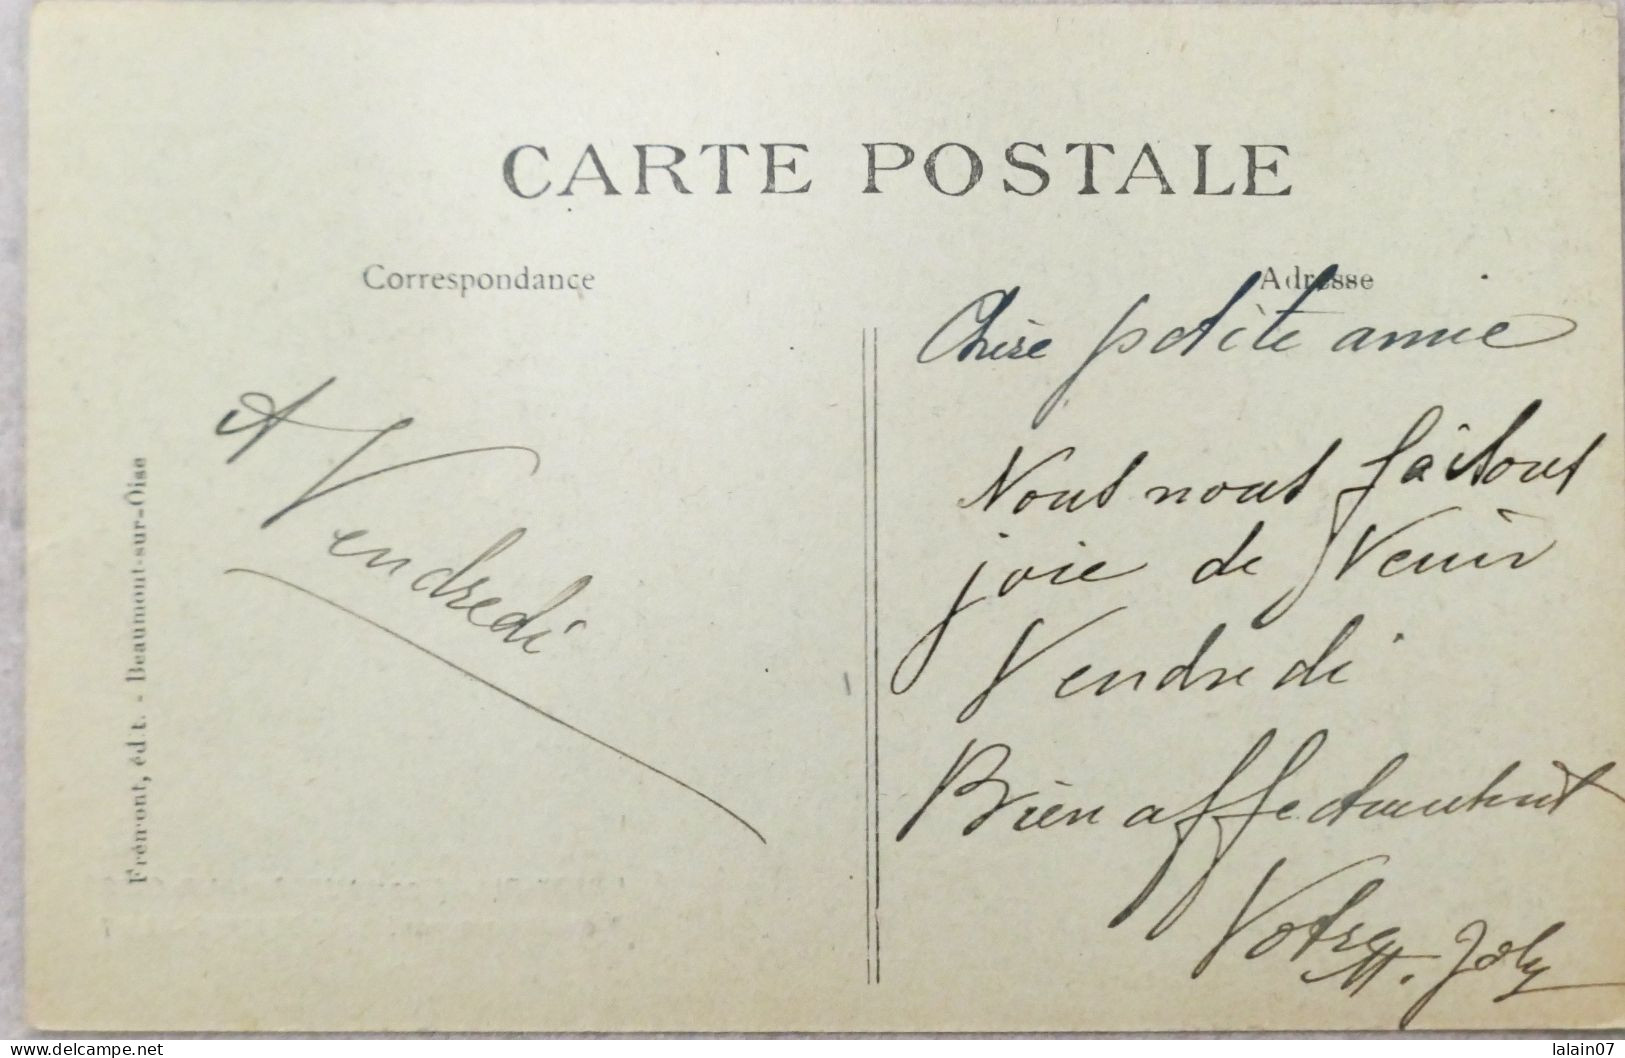 CARTE POSTALE
Correspondance
Adresse
A Vendredi
Frémont, édit. - Beaumont-sur-Oise
Chère petite amie
Nous nous faisons
joie de Venir
Vendredi
Bien affectueusement
Votre
M. Joly
www.delcampe.net
lalain07